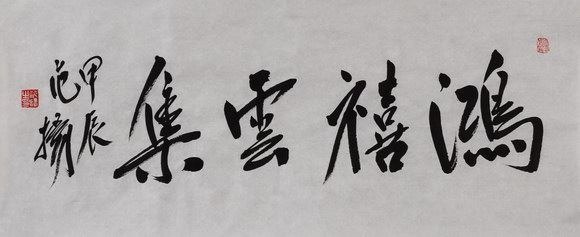 鴻禧雲集
甲辰
范